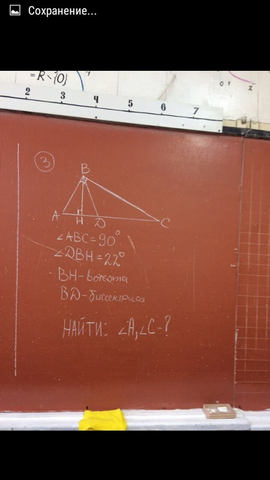 Сохранение...
= R \ {0}
0 1 2
2 3 4 5 6 7
3
B
A H D C
∠ABC = 90°
∠DBH = 22°
BH - высота
BD - биссектриса
НАЙТИ: ∠A, ∠C - ?